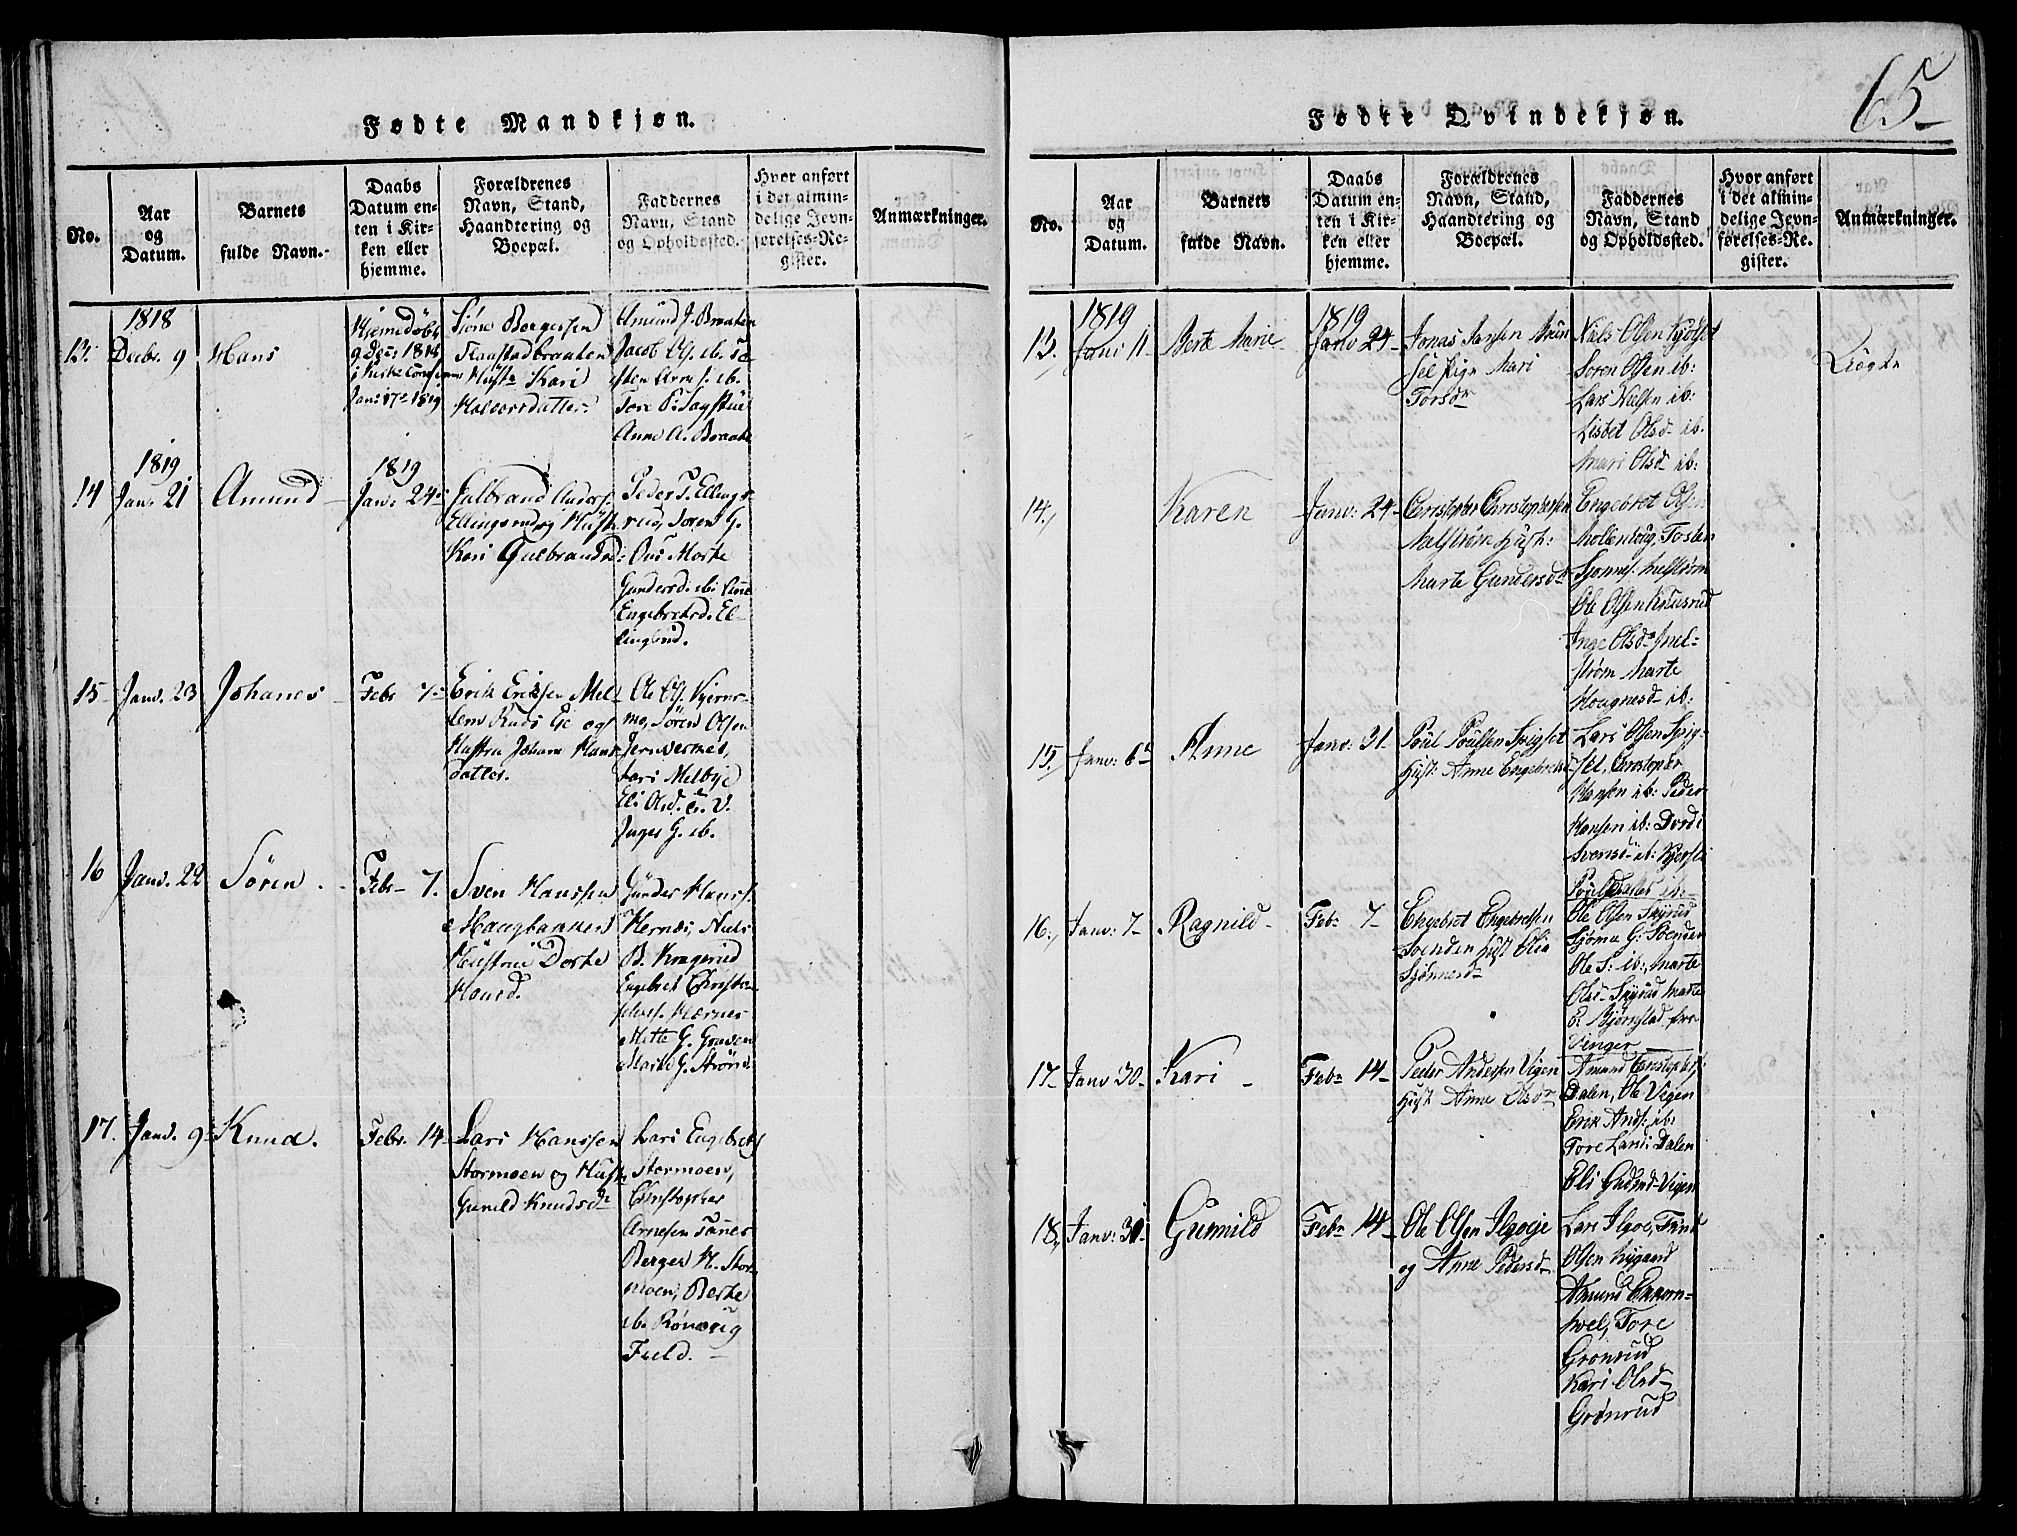 65
Fødte Mandkjøn.
No.
Aar
og
Datum.
Barnets
fulde Navn.
Daabs
Datum en-
ten i Kir-
ken eller
hjemme.
Forældrenes
Navn, Stand,
Haandtering og
Boepæl.
Faddernes
Navn, Stand
og Opholdssted.
Hvor anført
i det almin-
delige Jevn-
førelses-Re-
gister.
Anmærkninger.
1818
13. Decbr. 9
Hans
Hjemedøbt
9 Dec: 1818
Jan: 17de 1819
Søne Borgersen
Flaastadbraaten
Hustr Kari
Halvorsdatter
Amund J. Braaten
Jacob Ols. ib.
Tore P:
Anne A. Braate
1819
14 Jan. 21
Amund
1819
Jan: 24
Gulbrand Anders.
Ellingsrud og Hust
Kari Gulbrandsd:
Peder T. Ellings-
rud, Soren G.
Ous Marte
Gundersd. ib:
Engebretsd. El-
lingsrud.
15 Janv. 23
Johanes
Febr 7
Erik Eriksen Mel-
lem Kuds Eie og
Hustru Johane Hans
datter.
Ole Ols. Hjerne-
moe, Sören Olsen
Jernversmoe,
Lars Melbye
Eli Olsd.
Inger G. ib.
16 Janv. 22
Sören
Febr 7.
Sven Hanssen
Haugbakken
Hustrue Dorte
Hansd.
Gunder Hans.
Hernæs, Niels
B. Krogerud
Engebret Christo-
phers. Hernes
Mette G. Graven
Marte G. Strøm
17. Janv. 9
Knud.
Febr. 14
Lars Hanssen
Stormoen og Hustr
Gunild Knudsdr
Lars Engebrets
Stormoen,
Christopher
Arnesen
Berger H. Stor-
moen, Berte
ib.
Field.
Fødte Qvindekjøn.
No.
Aar
og
Datum.
Barnets
fulde Navn.
Daabs
Datum en-
ten i Kir-
ken eller
hjemme.
Forældrenes
Navn, Stand,
Haandtering og
Boepæl.
Faddernes
Navn, Stand
og Opholdssted.
Hvor anført
i det almin-
delige Jevn-
førelses-Re-
gister.
Anmærkninger.
1819
13. Janv 11
Berte Marie
1819
Janv 24
Jonas Jansen
Pige Mari
Torsdr
Niels Olsen
Soren Olsen ib:
Lars Nielsen ib:
Lisbet Olsd ib.
Mari Olsd ib:
Uægte
14.
Karen
Janv: 24
Cristopher Cristophersen
Melstrøm Hust:
Marte Gundersdr
Engebret Olsen
Mellembye, Tosten
Sjønnes. Melstrøm
Ole Olsen Knusrud
Inge Olsdr Mel-
strøm Marte
Haagensd ib:
15. Janv: 6
Anne
Janv: 31.
Poul Poulsen Spigset
Hust: Anne Engebretsd
Lars Olsen Spig-
set, Cristopher
Hansen ib: Peder
Hansen ib: Dordi
Svensd ib: Kjersti
Poulsdatter ib:
16. Janv: 7
Ragnild
Febr 7
Engebret Engebretsen
Svenden Hust Olia
Sjønnesd
Ole Olsen Skyrud
Sjønne G: Svenden
Ole S: ib: Marte
Olsd Skyrud Marte
E. Bjørnstad fra
Vinger
17 Janv 30
Kari
Febr 14
Peder Andersen Vigen
Hust Anne Olsdr
Amund Cristophs.
Dalen, Ole Vigen
Erik Ands. ib:
Tore Lars: Dalen
Eli Gudmd. Vigen
18. Janv: 31
Gunnild
Febr 14
Ole Olsen Ilgoeje
og Anne Pedersd
Lars Ilgoe,
Olsen Nygaard
Amund Ekorn-
hoel, Tore
Gronrud
Kari Olsd
Grønrud